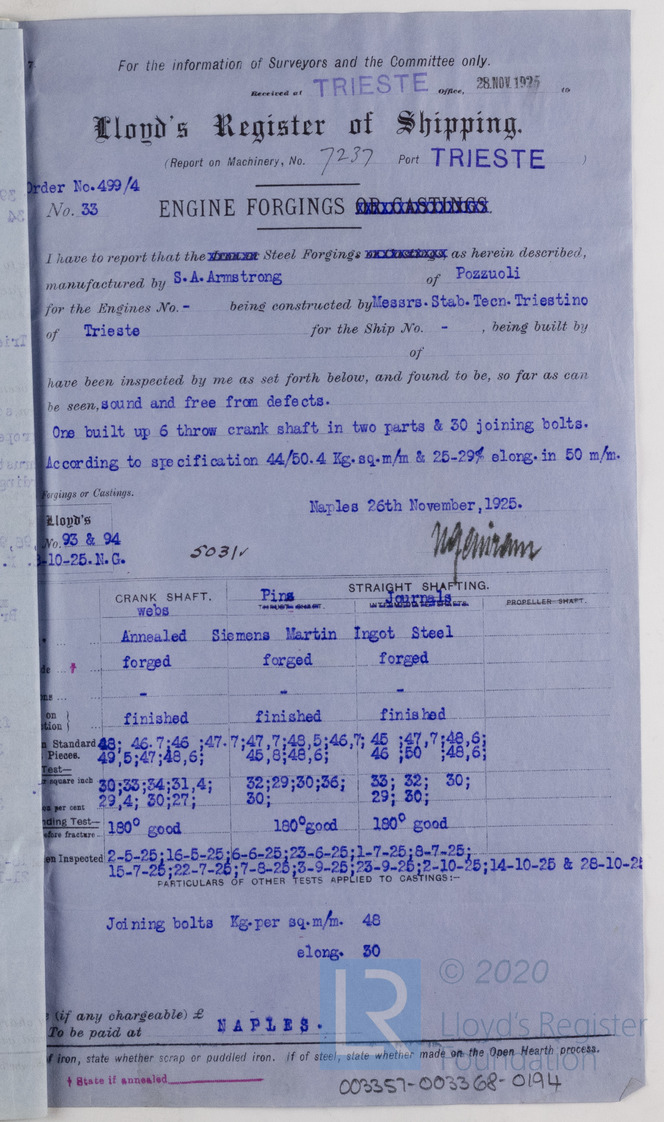 For the information of Surveyors and the Committee only.
Received at TRIESTE Office, 28 NOV. 1925 to
Lloyd's Register of Shipping.
(Report on Machinery, No. 7237 Port TRIESTE )
Order No. 499/4
No. 33 ENGINE FORGINGS OR CASTINGS.
I have to report that the Steel Forgings as herein described,
manufactured by S.A.Armstrong of Pozzuoli
for the Engines No. - being constructed by Messrs. Stab. Tecn. Triestino
of Trieste for the Ship No. - , being built by
of
have been inspected by me as set forth below, and found to be, so far as can
be seen, sound and free from defects.
One built up 6 throw crank shaft in two parts & 30 joining bolts.
According to specification 44/50.4 Kg.sq.m/m & 25-29% elong. in 50 m/m.
Forgings or Castings.
Naples 26th November, 1925.
Lloyd's
No. 93 & 94
-10-25. N.G.
5031✓
CRANK SHAFT. STRAIGHT SHAFTING.
webs Pins Journals PROPELLER SHAFT.
Annealed Siemens Martin Ingot Steel
† forged forged forged
- - -
on
tion finished finished finished
Standard 48; 46.7;46 ;47.7;47,7;48,5;46,7; 45 ;47,7;48,6;
Pieces. 49,5;47;48,6; 45,8;48,6; 46 ;50 ;48,6;
Test—
square inch 30;33;34;31,4; 32;29;30;36; 33; 32; 30;
per cent 29,4; 30;27; 30; 29; 30;
ding Test—
before fracture 180° good 180°good 180° good
Inspected 2-5-25;16-5-25;6-6-25;23-6-25;1-7-25;8-7-25;
15-7-25;22-7-25;7-8-25;3-9-25;23-9-25;2-10-25;14-10-25 & 28-10-25
PARTICULARS OF OTHER TESTS APPLIED TO CASTINGS:—
Joining bolts Kg.per sq.m/m. 48
elong. 30
(if any chargeable) £
To be paid at NAPLES.
If iron, state whether scrap or puddled iron. If of steel, state whether made on the Open Hearth process.
† State if annealed
003357-003368-0194
LR
© 2020
Lloyd's Register
Foundation